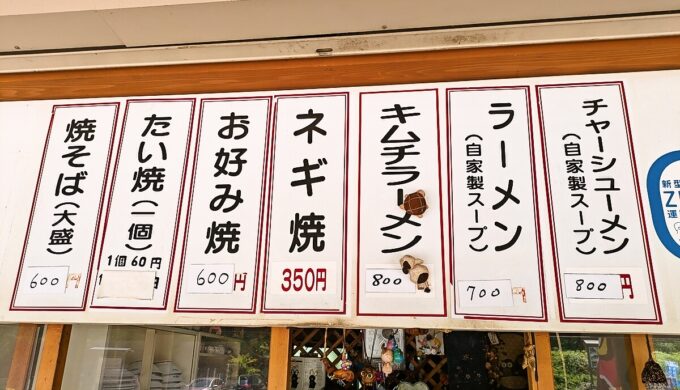 チャーシューメン
(自家製スープ)
800円
ラーメン
(自家製スープ)
700
キムチラーメン
800
ネギ焼
350円
お好み焼
600円
たい焼(一個)
1個60円
焼そば(大盛)
600
新型